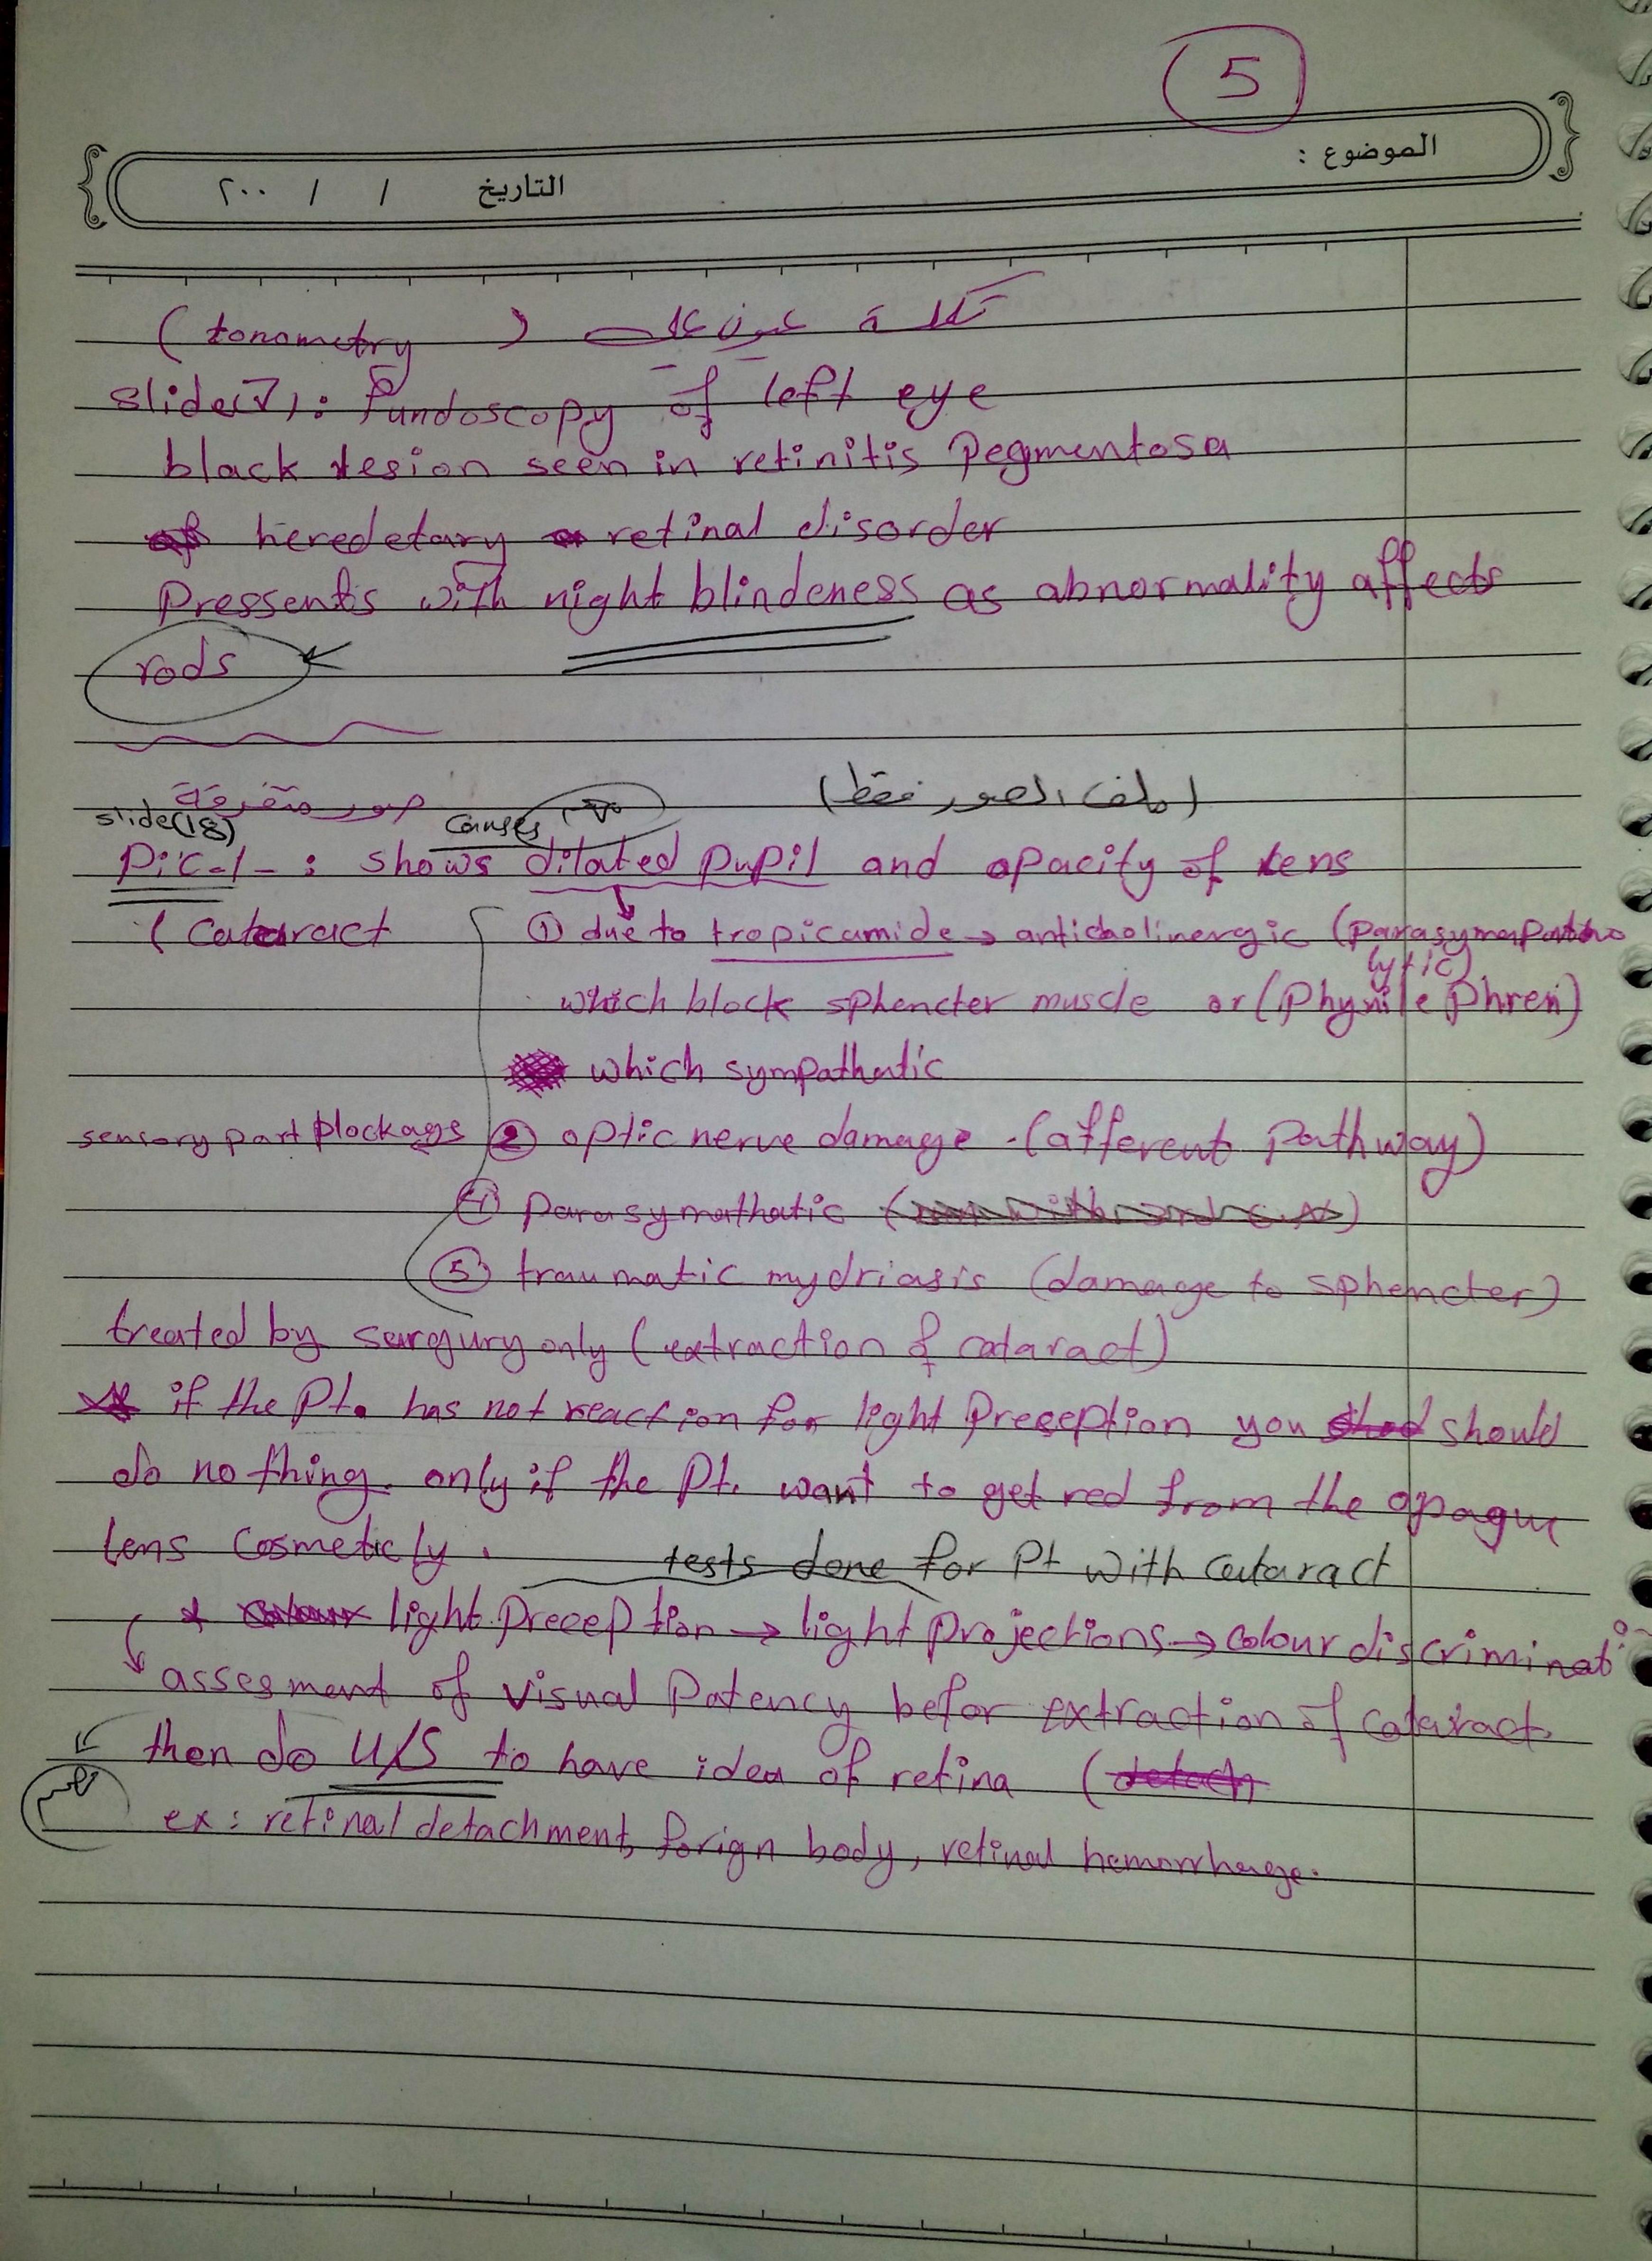 5
الموضوع :
التاريخ / / ٢٠٠
(tonometry) تكملة عيون عملي
slide(7): Fundoscopy of left eye
black lesion seen in retinitis pegmentosa
heredetary retinal disorder
Pressents with night blindeness as abnormality affects
rods
صور متفرقة (ملف الصور فقط)
slide(18) Causes
Pic-1-: shows dilated pupil and opacity of lens
(Cataract ① due to tropicamide → anticholinergic (parasympatho
lytic)
which block sphencter muscle or (Phynile Phren)
which sympathatic
sensory part plockage ② optic nerve damage -(afferent pathway)
④ parasymathatic
⑤ traumatic mydriasis (damage to sphencter)
treated by surgury only (extraction of cataract)
if the Pt. has not reaction for light Preception you should
do no thing. only if the Pt. want to get red from the opague
lens Cosmeticly. tests done for Pt with Cataract
* light Preception → light projections → colour discriminat
assesment of visual Patency befor extraction of Cataract.
then do U/S to have idea of retina (
ex: retinal detachment, forign body, retinal hemorrhage.